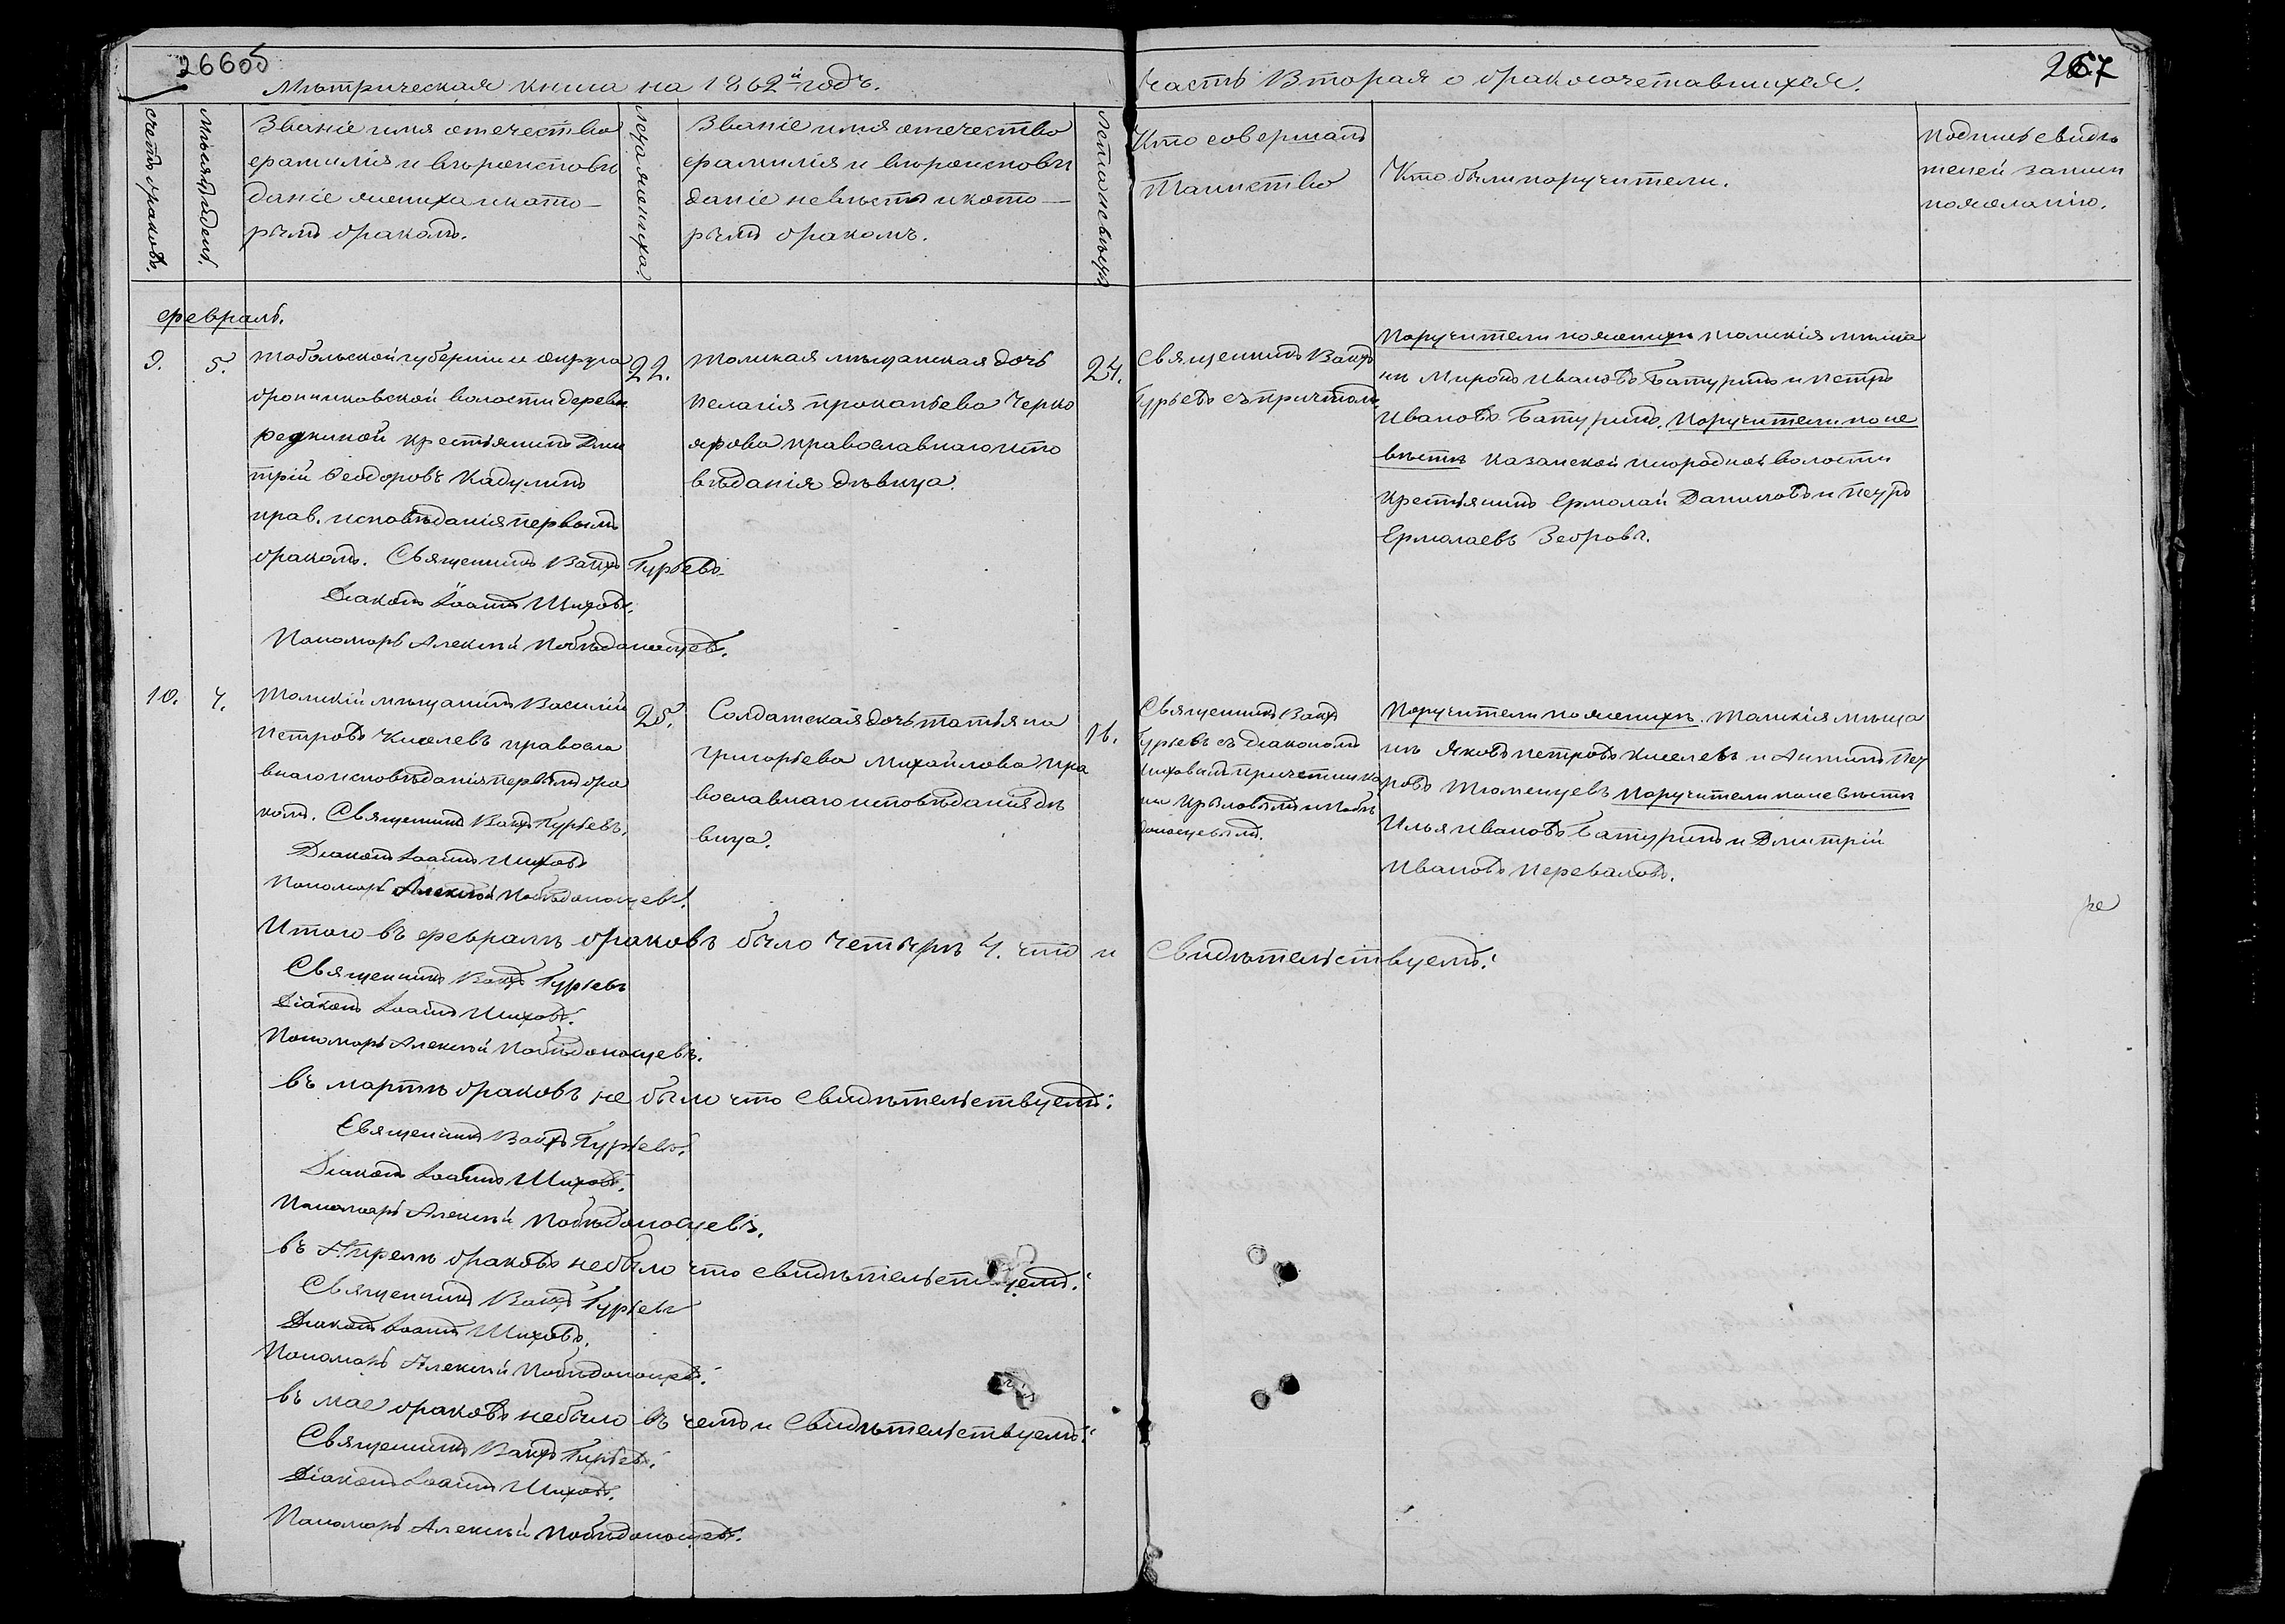 26605
Метрическая книга на 1862й годъ.
Часть Вторая о бракосочетавшихся.
267
счетъ браковъ.
Месяцъ и день.
Званіе имя отечество
фамилія и вѣроисповѣ
даніе жениха и кото-
рымъ бракомъ.
лета жениха.
Званіе имя отечество
фамилія и вѣроисповѣ
даніе невѣсты и кото-
рымъ бракомъ.
Лета невѣсты
Кто совершалъ
Таинство
Кто были поручители.
Подпись свидѣ
телей записи
по желанію.
февраль.
9.
5.
Тобольской губерніи и округа
бронниковской волости деревни
редкиной крестьянинъ Дми
трій Феодоровъ Кадулинъ
прав. исповѣданія первымъ
бракомъ. Священникъ Вакхъ Гурьевъ
Діаконъ Іоаннъ Шиховъ.
Пономарь Алексѣй Побѣдоносцевъ.
22.
Томская мѣщанская дочь
Пелагія прокопьева Черно
ярова православнаго испо
вѣданія дѣвица.
24.
Священникъ Вакхъ
Гурьевъ съ причтомъ.
Поручители по женихѣ томскія мѣща
не Миронъ Ивановъ Батуринъ и Петръ
Ивановъ Батуринъ. Поручители по не
вѣсте Казанской инородной волости
Крестьянинъ Ермолай Даниловъ и Петръ
Ермолаевъ Зебровъ.
10.
4.
Томскій мѣщанинъ Василій
Петровъ Киселевъ правосла
внаго исповѣданія первымъ бра
комъ. Священникъ Вакхъ Гурьевъ.
Діаконъ Іоаннъ Шиховъ
Пономарь Алексѣй Побѣдоносцевъ.
25.
Солдатская дочь татьяна
Григорьева Михайлова пра
вославнаго исповѣданія дѣ
вица.
16.
Священникъ Вакхъ
Гурьевъ съ діакономъ
Шиховымъ причетника
ми Крыловымъ и Побѣ
доносцевымъ.
Поручители по женихѣ. Томскія мѣща
не Яковъ петровъ Киселевъ и Антипъ Пет
ровъ Тюменцевъ поручители по невѣсте
Илья Ивановъ Батуринъ и Дмитрій
Ивановъ Переваловъ.
Итого въ февралѣ браковъ было четыре 4. что и свидѣтельствуемъ:
Священникъ Вакхъ Гурьевъ
Діаконъ Іоаннъ Шиховъ.
Пономарь Алексѣй Побѣдоносцевъ.
въ мартѣ браковъ не было что свидѣтельствуемъ:
Священникъ Вакхъ Гурьевъ.
Діаконъ Іоаннъ Шиховъ.
Пономарь Алексѣй Побѣдоносцевъ.
въ Апрелѣ браковъ небыло что свидѣтельст уемъ:
Священникъ Вакхъ Гурьевъ
Діаконъ Іоаннъ Шиховъ.
Пономарь Алексѣй Побѣдоносцевъ.
въ мае браковъ небыло въ чемъ и свидѣтельствуемъ:
Священникъ Вакхъ Гурьевъ.
Діаконъ Іоаннъ Шиховъ.
Пономарь Алексѣй Побѣдоносцевъ.